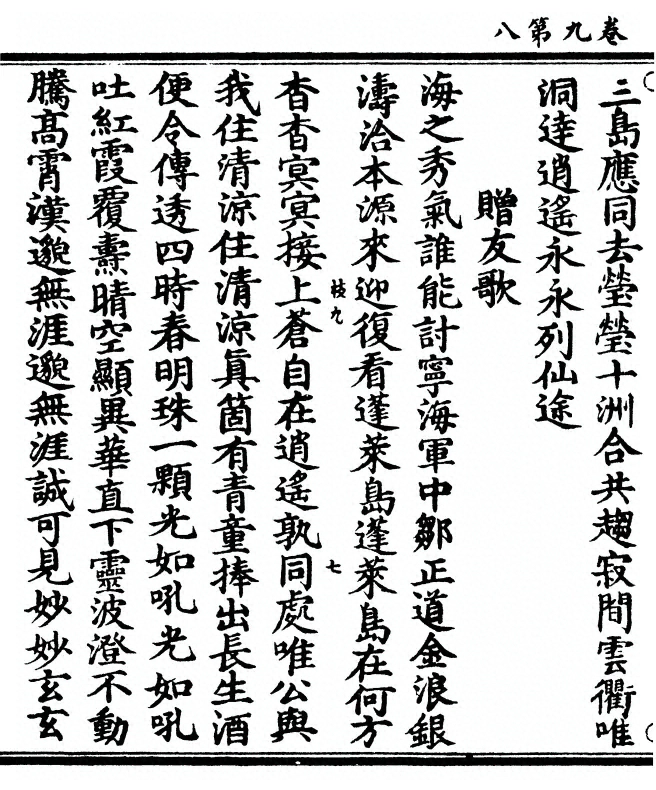 卷九第八
三島應同去瑩瑩十洲合共趨寂閒雲衢唯
洞達逍遙永永列仙途
贈友歌
海之秀氣誰能計寧海軍中鄒正道金浪銀
濤洽本源來迎復看蓬萊島蓬萊島在何方
杳杳冥冥接上蒼自在逍遙孰同處唯公與
枝九
七
我住清涼住清涼真箇有青童捧出長生酒
便令傳透四時春明珠一顆光如吼光如吼
吐紅霞覆燾晴空顯異華直下靈波澄不動
騰高霄漢邈無涯邈無涯誠可見妙妙玄玄